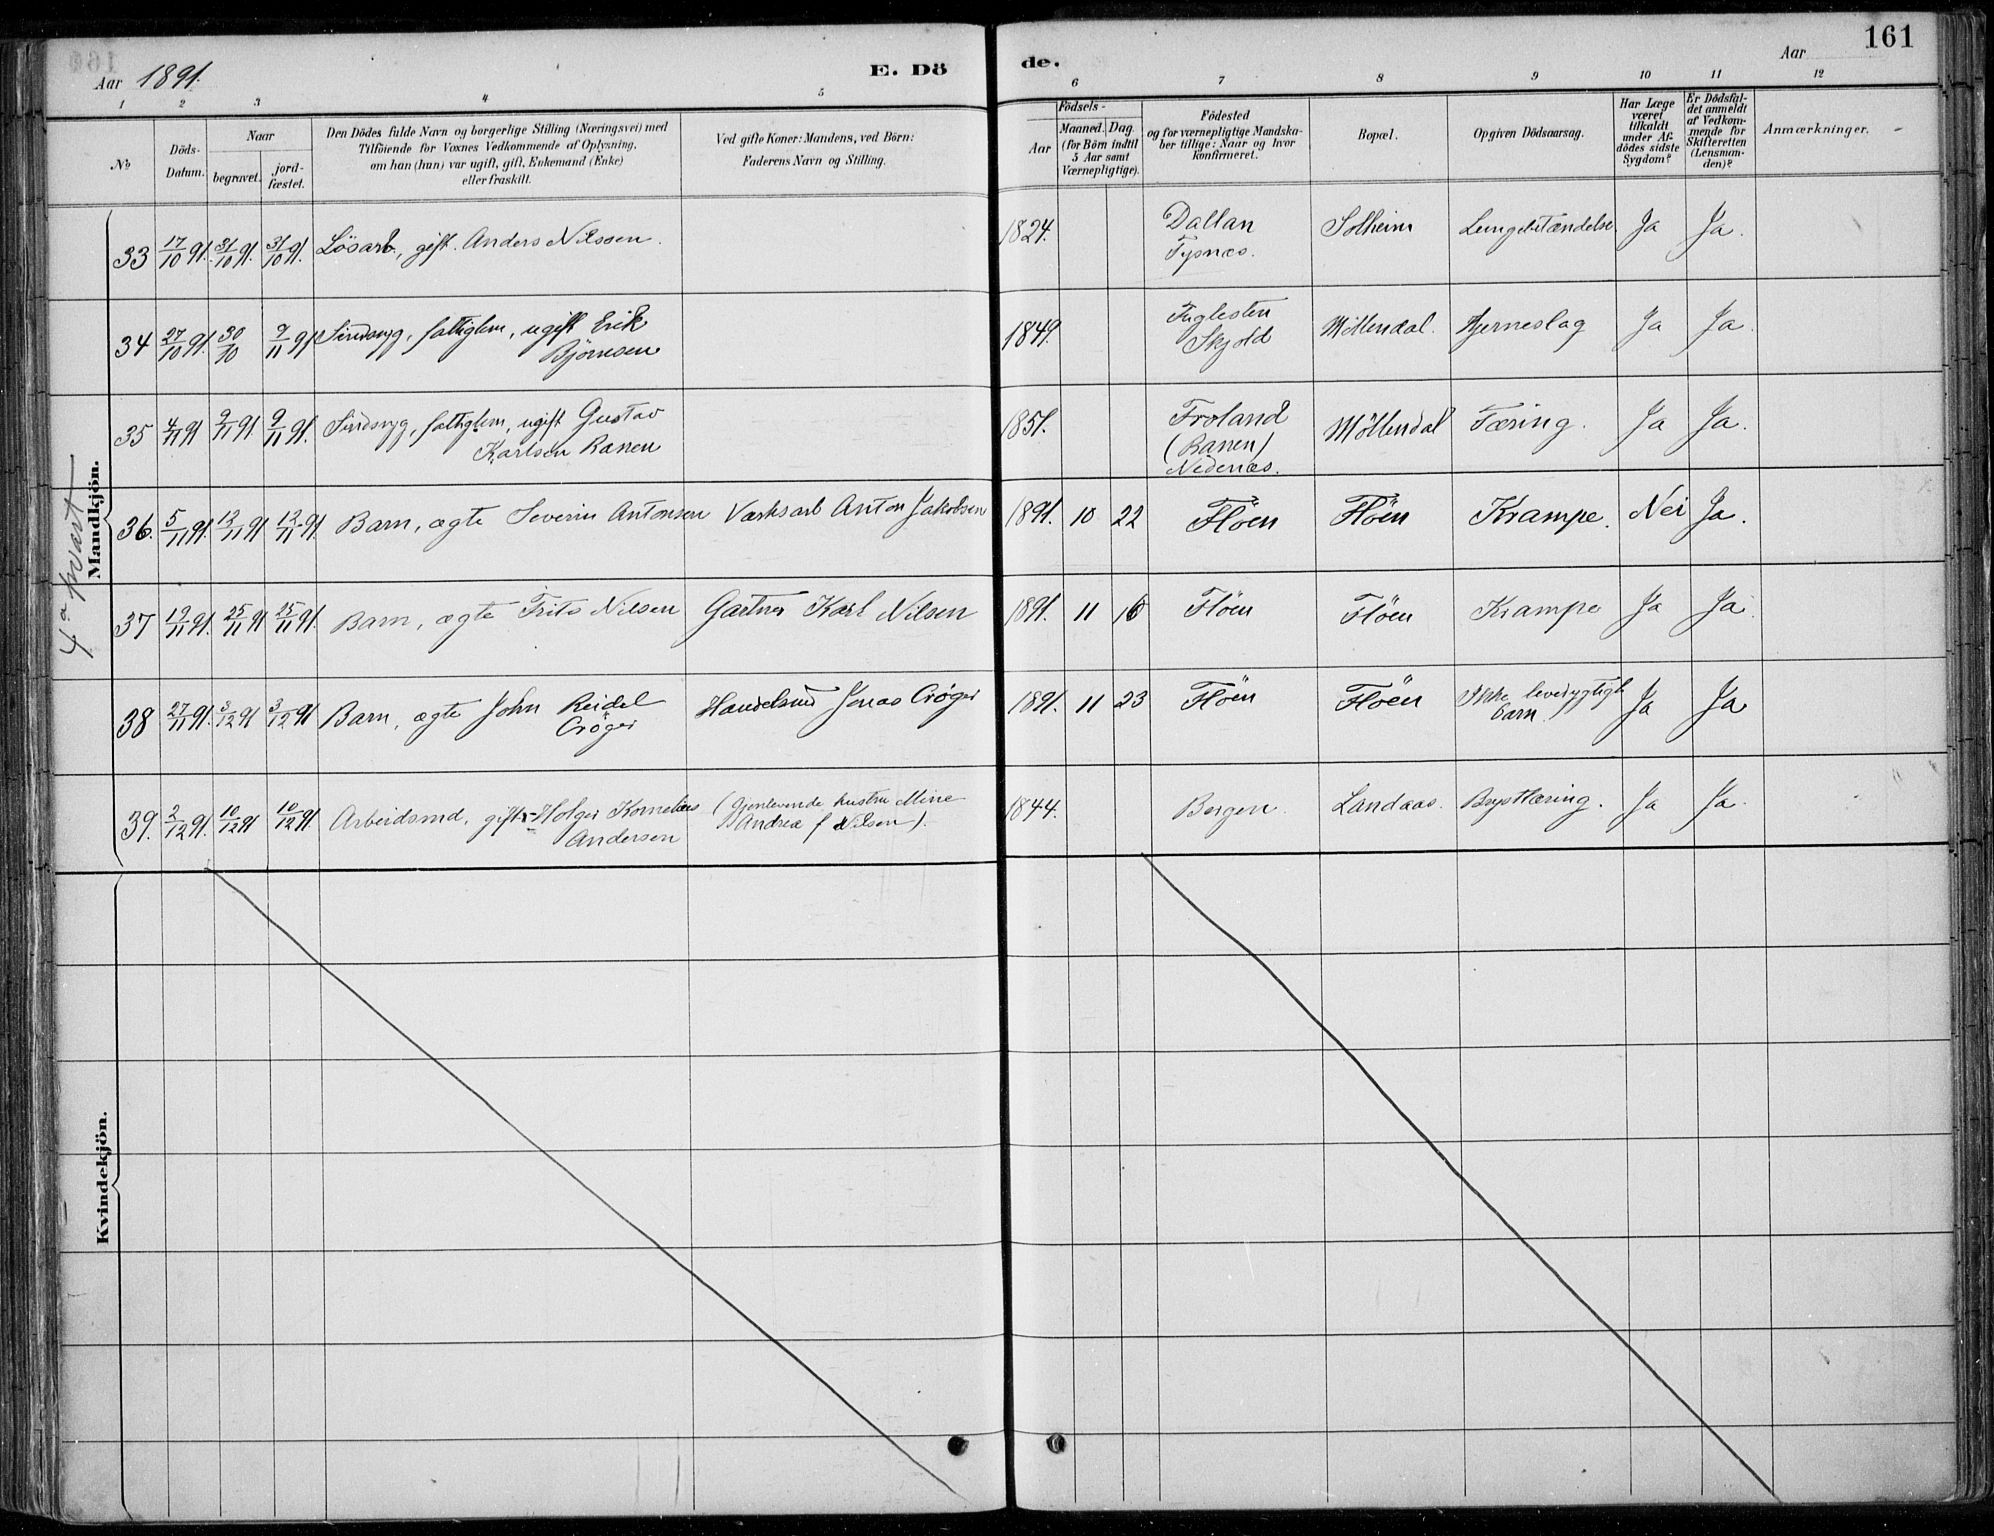 161
Aar 1891.
E. Dö
de.
Aar
1 2 3 4 5 6 7 8 9 10 11 12
No
Döds-Datum.
Naar
begravet.
jord-fæstet.
Den Dödes fulde Navn og borgerlige Stilling (Næringsvei) med
Tilföiende for Voxnes Vedkommende af Oplysning,
om han (hun) var ugift, gift, Enkemand (Enke)
eller fraskilt.
Ved gifte Koner: Mandens, ved Börn:
Faderens Navn og Stilling.
Födsels-
Aar
Maaned. Dag.
(for Börn indtil
5 Aar samt
Værnepligtige).
Födested
og for værnepligtige Mandska-
ber tillige: Naar og hvor
konfirmeret.
Bopæl.
Opgiven Dödsaarsag.
Har Læge
været
tilkaldt
under Af-
dödes sidste
Sygdom?
Er Dödsfal-
det anmeldt
af Vedkom-
mende for
Skifteretten
(Lensman-
den)?
Anmærkninger.
Mandkjön.
4de kvart
33 17/10 91. 31/10 91. 31/10 91. Lösarb., gift. Anders Nilssen. 1824. Dallan Tysnæs. Solheim Lungebetændelse Ja Ja.
34 27/10 91. 30/10 9/11 91 Sindssyg, fattiglem, ugift Erik Björnsen 1849. Fuglesten Skjold Möllendal. Hjerneslag Ja Ja.
35 4/11 91 9/11 91 9/11 91. Sindssyg, fattiglem, ugift Gustav Karlsen Ranen 1851. Froland (Ranen) Nedenæs. Möllendal Tæring. Ja Ja.
36. 5/11 91. 13/11 91 13/11 91. Barn, ægte Severin Antonsen Værksarb Anton Jakobsen 1891. 10 22 Flöen Flöen Krampe. Nei Ja.
37 19/11 91. 25/11 91 25/11 91. Barn, ægte Frits Nilsen Gartner Karl Nilsen 1891. 11 16 Flöen Flöen Krampe Ja Ja
38 27/11 91. 3/12 91 3/12 91 Barn, ægte John Reidel Cröger Handelsmd Jonas Cröger 1891. 11 23 Flöen Flöen Ikke levedygtigt barn Ja Ja
39. 2/12 91. 10/12 91 10/12 91. Arbeidsmd, gift Holger Kornelius Andersen (Gjenlevende hustru Mine Andrea f Nilsen). 1844. Bergen. Landaas. Brysttæring. Ja Ja.
Kvindekjön.